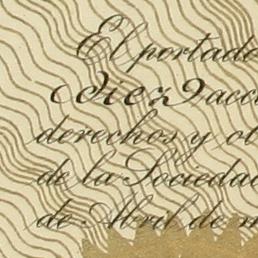 El portado
diez acci
derechos y ob
de la Sociedad
de Abril de m